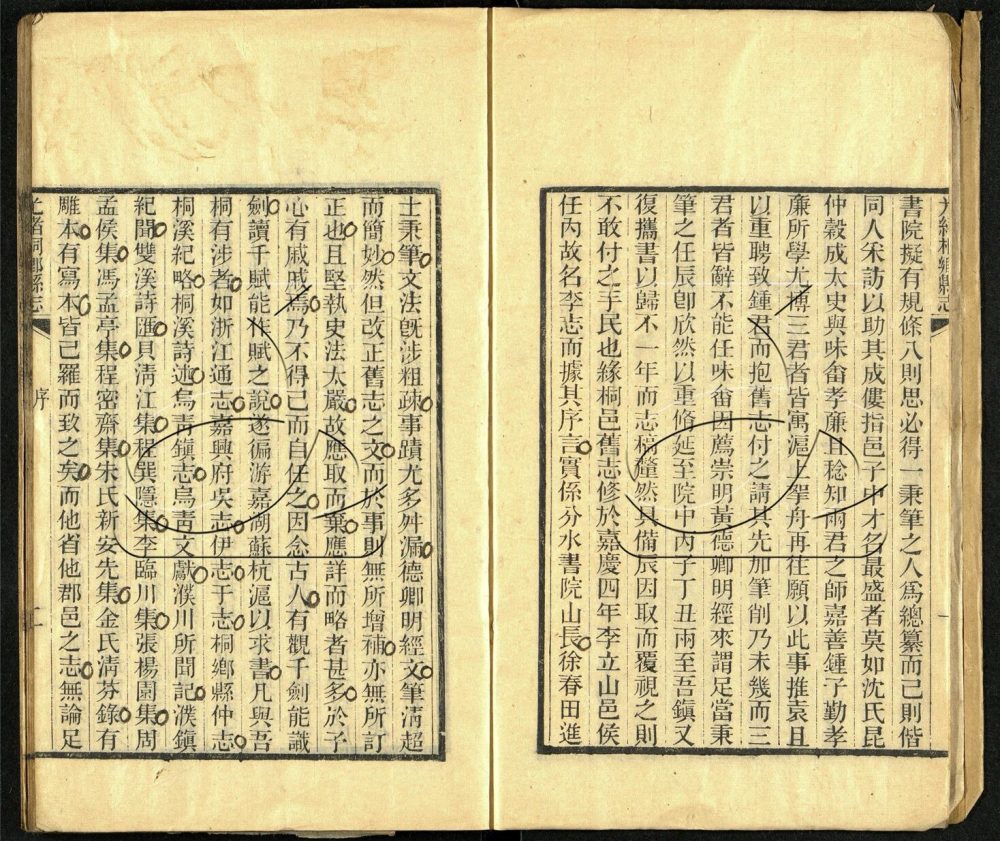 書院擬有規條八則思必得一秉筆之人爲總纂而已則偕
同人采訪以助其成僂指邑子中才名最盛者莫如沈氏昆
仲穀成太史與味畬孝廉且稔知兩君之師嘉善鍾子勤孝
廉所學尤博三君者皆寓滬上拏舟再往願以此事推袁且
以重聘致鍾君而抱舊志付之請其先加筆削乃未幾而三
君者皆辭不能任味畬因薦崇明黃德卿明經來謂足當秉
筆之任辰卽欣然以重脩延至院中丙子丁丑兩至吾鎭又
復攜書以歸不一年而志稿釐然具備辰因取而覆視之則
不敢付之手民也緣桐邑舊志修於嘉慶四年李立山邑侯
任內故名李志而據其序言實係分水書院山長徐春田進
士秉筆文法旣涉粗疎事蹟尤多舛漏德卿明經文筆淸超
而簡妙然但改正舊志之文而於事則無所增補亦無所訂
正也且堅執史法太嚴故應取而棄應詳而略者甚多於予
心有戚戚焉乃不得已而自任之因念古人有觀千劍能識
劍讀千賦能作賦之說遂徧游嘉湖蘇杭滬以求書凡與吾
桐有涉者如浙江通志嘉興府吳志伊志于志桐鄉縣仲志
桐溪紀略桐溪詩述烏靑鎭志烏靑文獻濮川所聞記濮鎭
紀聞雙溪詩匯貝淸江集程巽隱集李臨川集張楊園集周
孟侯集馮孟亭集程密齋集朱氏新安先集金氏淸芬錄有
雕本有寫本皆已羅而致之矣而他省他郡邑之志無論足
光緒桐鄉縣志
序
二